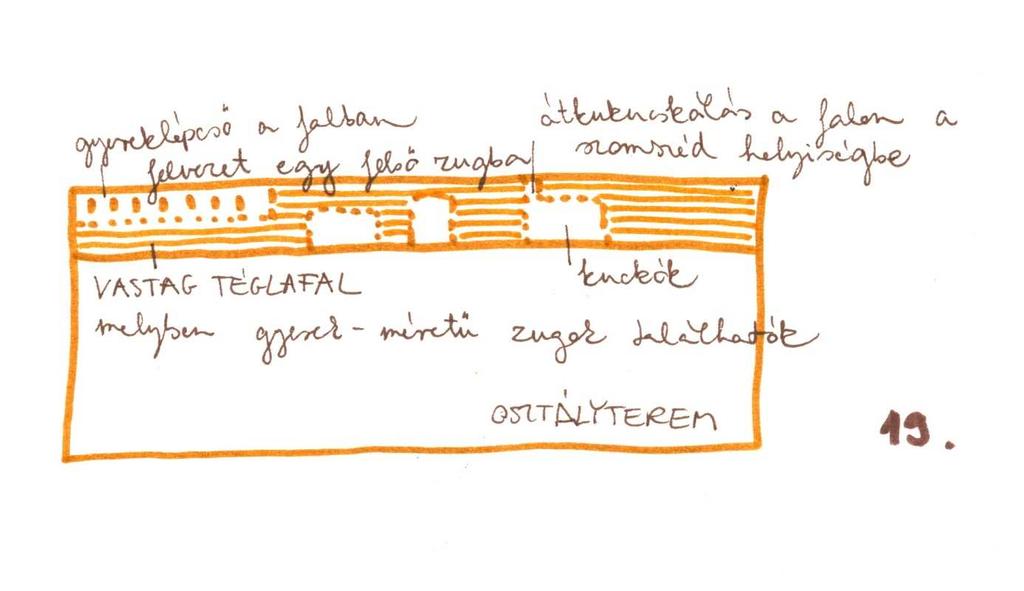 gyereklépcső a falban
felvezet egy felső zugba
átkukucskálás a falon a
szomszéd helyiségbe
kuckók
VASTAG TÉGLAFAL
melyben gyerek-méretű zugok találhatók
OSZTÁLYTEREM
19.